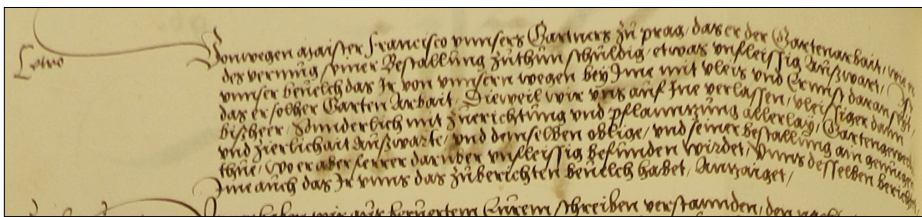 Vonwegen maister Francisco vnnsers Gartners zu prag, das er der Gartenarbait, wie er
des vermüg seiner Bestallung zuthun schuldig, etwas vnfleissig außwart, Ist
vnnser beuelch das Ir von vnnsern wegen bey Ime mit vleis vnd Ernnst daran seyt
das er solher Garten Arbait, Dieweil wir vns auf Ine verlassen, vleissiger dann
bißheer, Sonnderlich mit Zuerichtung vnd pflanntzung allerlay, Gartengewechs
vnd zierlichait außwarte, vnd demselben oblige, vnd seiner bestallung ain genüegen
thue, Wo er aber ferrer darüber vnfleissig befunden wirdet, vnns desselben berichtet
Ime auch das Ir vnns das zuberichten beuelch habet, Anzaiget,
wir aus berüertem Eurem schreiben verstannden, den